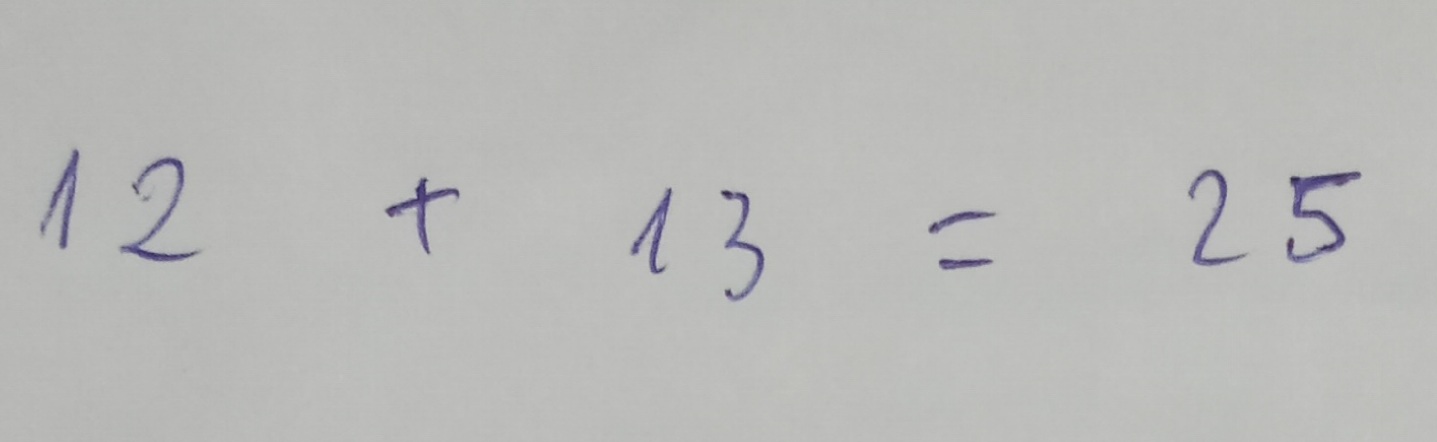 12 + 13 = 25